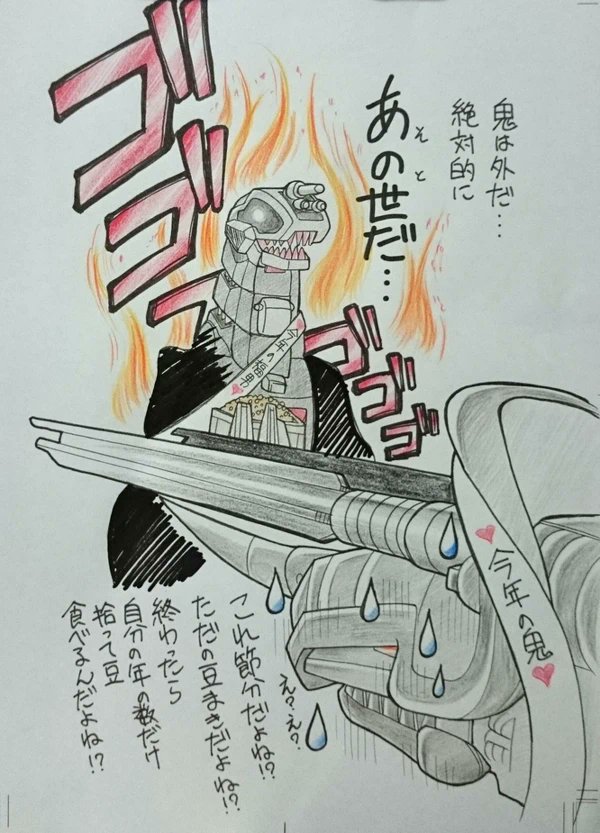 鬼は外だ…
絶対的に
あの世だ…
そと
ゴゴゴ
ゴゴゴ
今年の福男
今年の鬼
え?え?
これ節分だよね!?
ただの豆まきだよね!?
終わったら
自分の年の数だけ
拾って豆
食べるんだよね!?